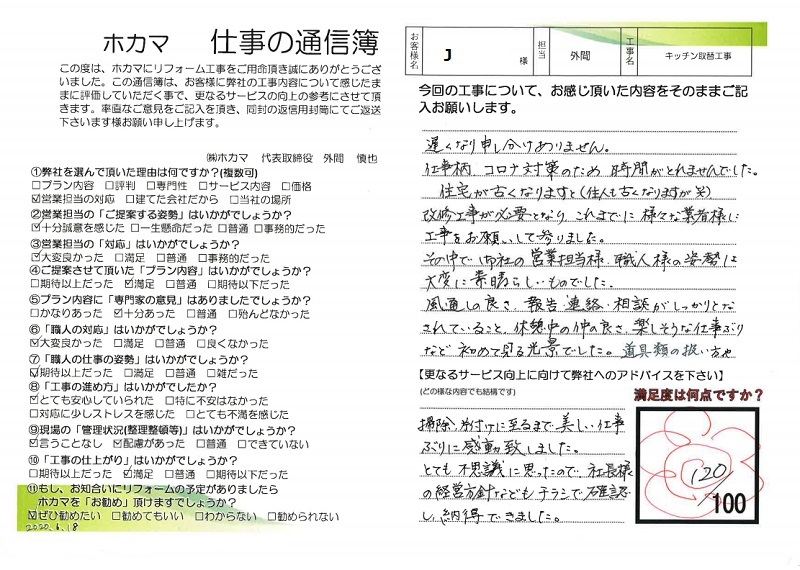 ホカマ 仕事の通信簿
この度は、ホカマにリフォーム工事をご用命頂き誠にありがとうござ
いました。この通信簿は、お客様に弊社の工事内容について感じたま
まに評価していただく事で、更なるサービスの向上の参考にさせて頂
きます。率直なご意見をご記入を頂き、同封の返信用封筒にてご返送
下さいます様お願い申し上げます。
㈱ホカマ 代表取締役 外間 慎也
①弊社を選んで頂いた理由は何ですか?(複数可)
□プラン内容 □評判 □専門性 □サービス内容 □価格
☑営業担当の対応 □建てた会社だから □当社の場所
②営業担当の「ご提案する姿勢」はいかがでしょうか?
☑十分誠意を感じた □一生懸命だった □普通 □事務的だった
③営業担当の「対応」はいかがでしょうか?
☑大変良かった □満足 □普通 □事務的だった
④ご提案させて頂いた「プラン内容」はいかがでしょうか?
□期待以上だった ☑満足 □普通 □期待以下だった
⑤プラン内容に「専門家の意見」はありましたでしょうか?
□かなりあった ☑十分あった □普通 □殆んどなかった
⑥「職人の対応」はいかがでしょうか?
☑大変良かった □満足 □普通 □良くなかった
⑦「職人の仕事の姿勢」はいかがでしょうか?
☑期待以上だった □満足 □普通 □雑だった
⑧「工事の進め方」はいかがでしたか?
☑とても安心していられた □特に不安はなかった
□対応に少しストレスを感じた □とても不満を感じた
⑨現場の「管理状況(整理整頓等)」はいかがでしょうか?
☑言うことなし ☑配慮があった □普通 □できていない
⑩「工事の仕上がり」はいかがでしょうか?
□期待以上だった ☑満足 □普通 □期待以下だった
⑪もし、お知合いにリフォームの予定がありましたら
ホカマを「お勧め」頂けますでしょうか?
☑ぜひ勧めたい □勧めてもいい □わからない □勧められない
2020.6.18
お客様名 J 様 担当 外間 工事名 キッチン取替工事
今回の工事について、お感じ頂いた内容をそのままご記
入お願いします。
遅くなり申し分けありません。
仕事柄、コロナ対策のため 時間がとれませんでした。
住宅が古くなりますと(住人も古くなりますが 笑)
改修工事が必要となり、これまでに 様々な業者様に
工事をお願いして参りました。
その中で 御社の営業担当様、職人様の姿勢は
大変に素晴らしいものでした。
風通しの良さ、報告・連絡・相談がしっかりとな
されていること、休憩中の仲の良さ、楽しそうな仕事ぶり
など 初めて見る光景でした。道具類の扱い方や
【更なるサービス向上に向けて弊社へのアドバイスを下さい】
(どの様な内容でも結構です)
満足度は何点ですか?
掃除、片付けに至るまで、美しい仕事
ぶりに感動致しました。
とても 不思議に思ったので、社長様
の経営方針なども チラシで確認
し、納得できました。
120/100